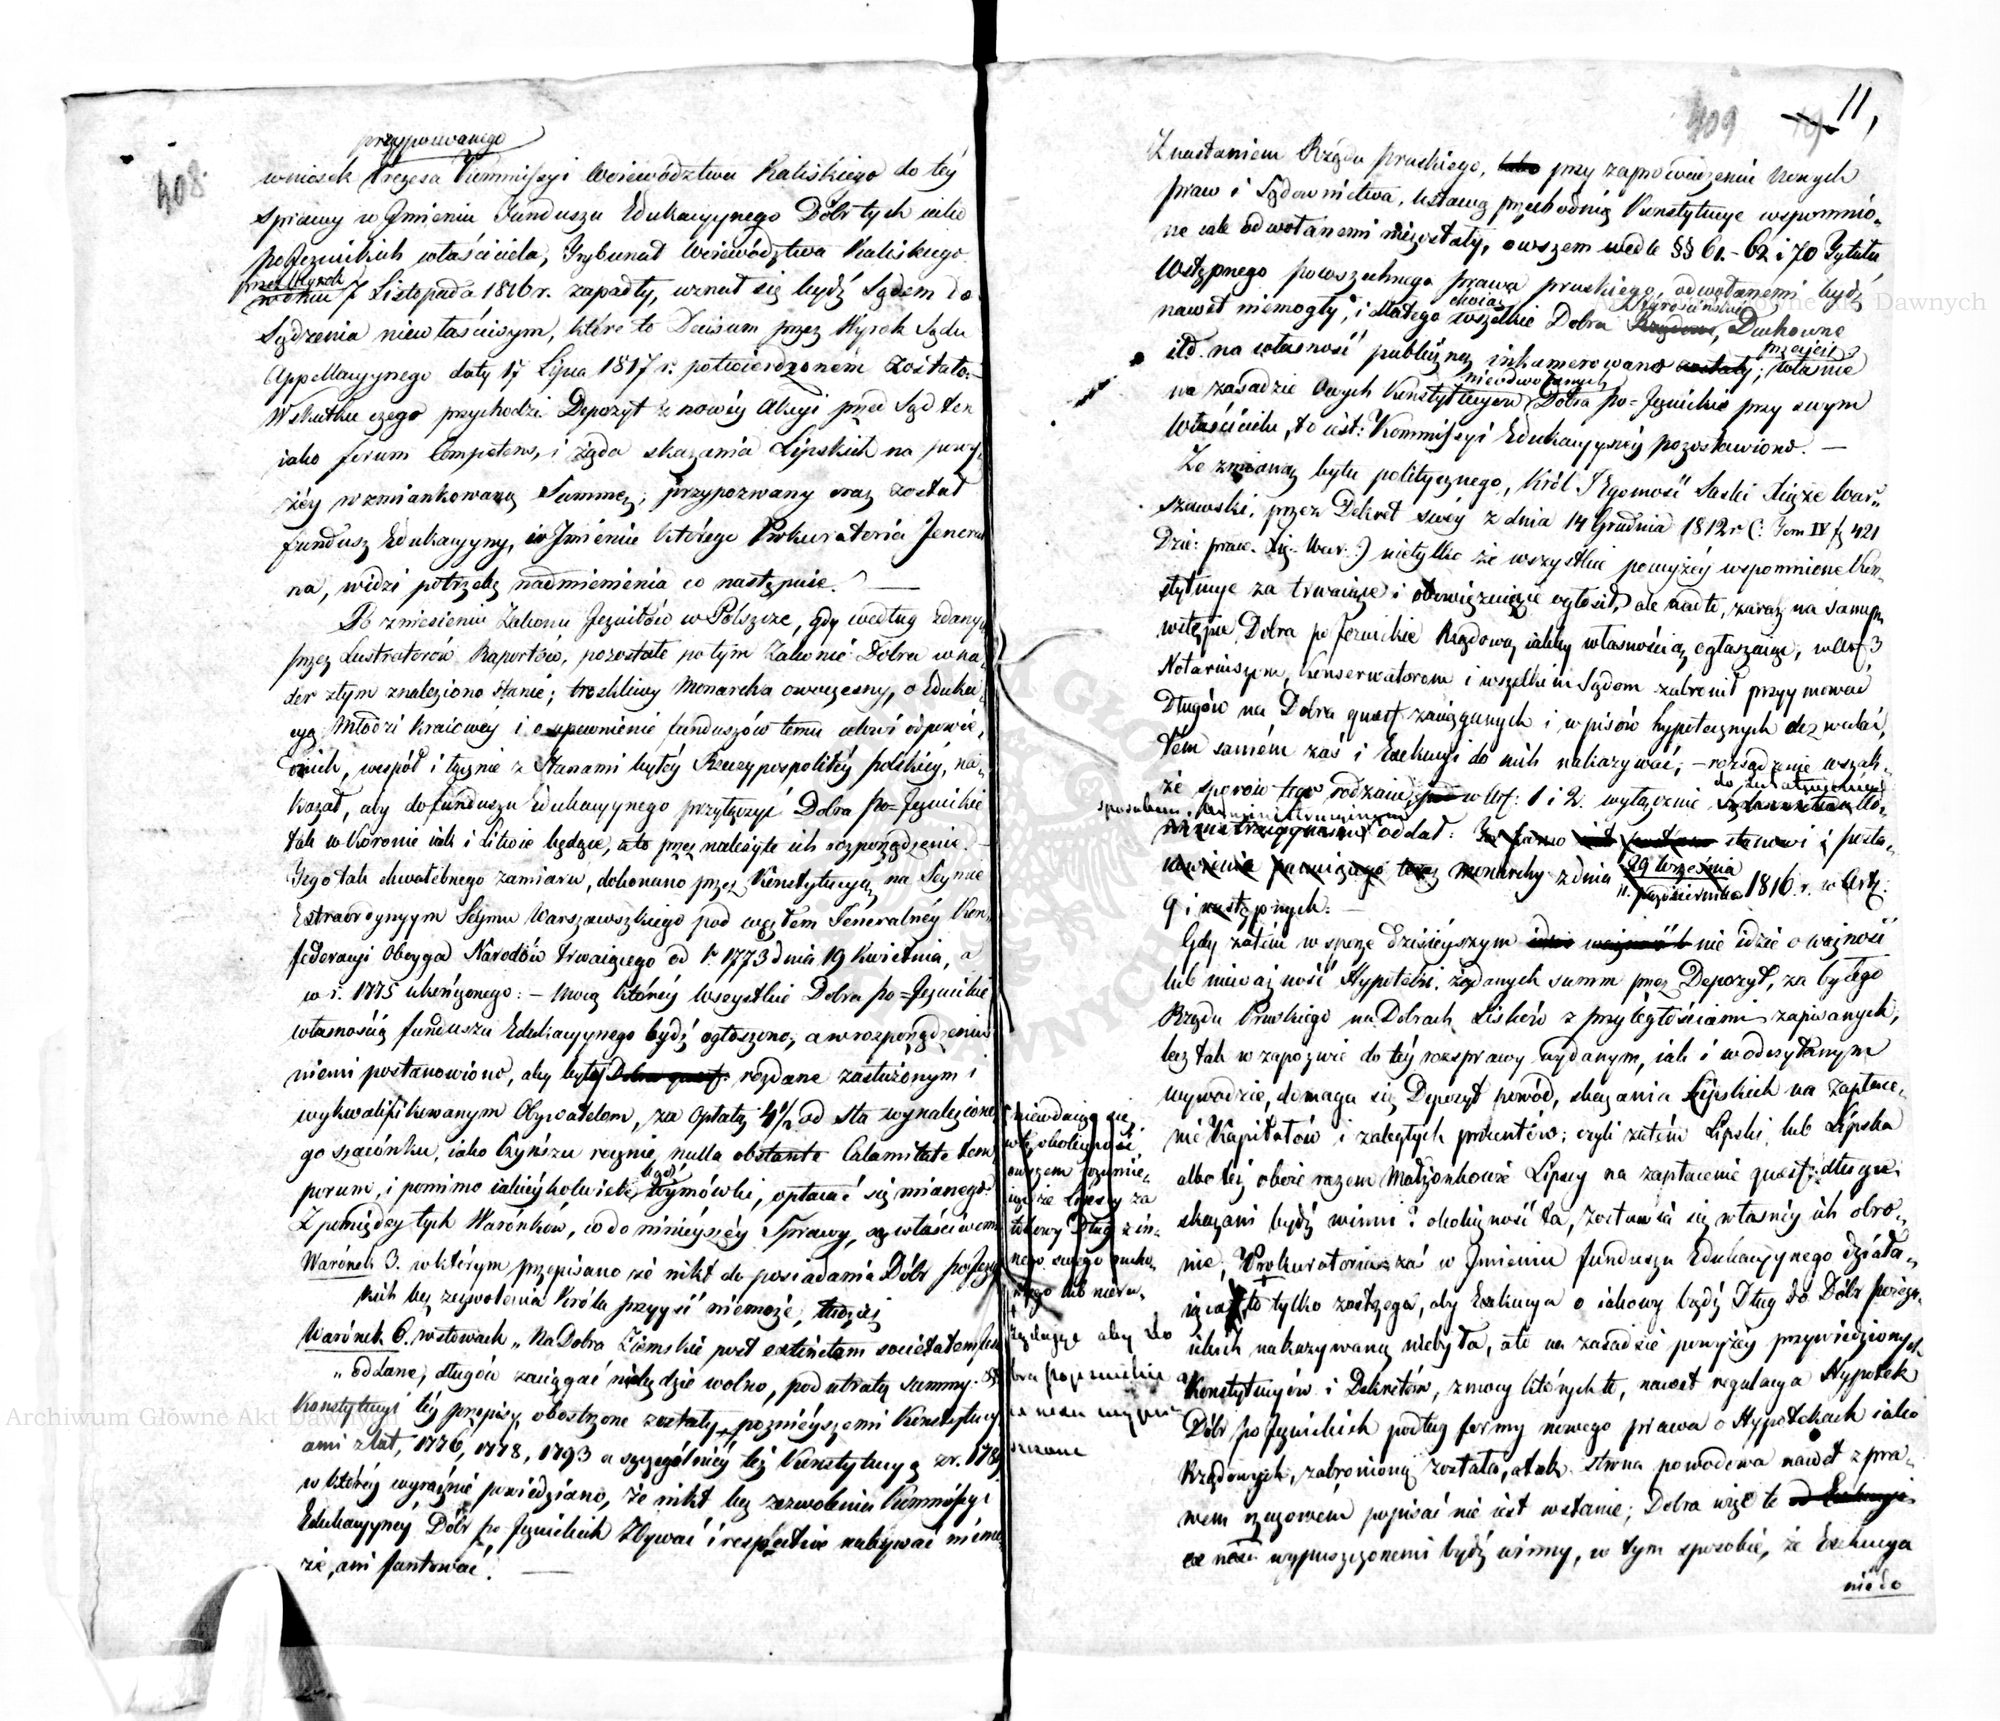 408.
przypozwanego
wniosek Prezesa Kommissyi Woiewództwa Kaliskiego do téy
sprawy w Jmieniu Funduszu Edukacyynego Dóbr tych iako
poJezuickich właściciela, Trybunał Woiewództwa Kaliskiego
przez Wyrok
w dniu 7 Listopada 1816 r. zapadły, uznał się bydź Sądem do
Sądzenia niewłaściwym, które to Decisum przez Wyrok Sądu
Appellacyynego daty 17 Lipca 1817 r. potwierdzoném zostało.
W skutku czego przychodzi Depozyt z nowéy Akcyi przed Sąd ten
iako forum Competens, i żąda skazania Lipskich na powy-
żéy wzmiankowaną Summę; przypozwany oraz został
fundusz Edukacyyny, w Jmieniu którego Prokuratoria Jeneral
na, widzi potrzebę nadmienienia co następuie. —
Po zniesieniu Zakonu Jezuitów w Polszcze, gdy według zdanych
przez Lustratorów Raportów, pozostałe po tym Zakonie Dobra w na-
der złym znaleziono stanie; troskliwy Monarcha owoczesny, o Eduka-
cyą Młodzi kraiowey i o upewnienie funduszów temu celowi odpowie-
dnich, wespół i łącznie z Stanami byłéy Rzeczypospolitéy polskiéy, na-
kazał, aby do funduszu Edukacyynego przyłączyć Dobra po=Jezuickie
tak w Koronie iak i Litwie będące, a to przez należyte ich rozporządzenie.
Jego tak chwalebnego zamiaru, dokonano przez Konstytucyą na Seymie
Extraordynyym Seymu Warszawskiego pod węzłem Generalnéy Kon-
federacyi Oboyga Narodów trwaiącego od r. 1773 dnia 19 Kwietnia, a
w r. 1775 ukończonego: — Mocą któréy wszystkie Dobra po=Jezuickie
własnością funduszu Edukacyynego bydź ogłoszono, a w rozporządzeniu
niemi postanowiono, aby były Dobra quaest. rozdane zasłużonym i
wykwalifikowanym Obywatelom, za opłatą 4½ od sta wynalezione
go szacónku, iako Czynszu rocznie, nulla obstante Calamitate tem
porum, i pomimo iakiéykolwiek bądź wymówki, opłacać się mianego.
Z pomiędzy tych Warónków, co do ninieyszéy Sprawy, są właściwemi
Warónek 3. w którym przepisano że nikt do posiadania Dóbr poJezu
kich bez zezwolenia Króla przyyść niemoże, tudzież
Warónek 6. w słowach „Na Dobra Ziemskie post extinctam societatem Jesu
„ oddane, długów zaciągać niebędzie wolno, pod utratą summy.
Konstytucyi téy przepisy obostrzone zostały, poznieyszemi Konstytucy
ami z lat, 1776, 1778, 1793 a szczególniéy téż Konstytucyą z r. 1789
w któréy wyraźnie powiedziano, że nikt bez zezwolenia Kommissyi
Edukacyynéy Dóbr po Jezuickich Zbywać i respective nabywać niemo
że, ani fantować. —
niewdaiąc się
w tę okoliczność
owszem
iąc że Lipscy za
takowy Dług z in-
nego swego rucho-
mego lub nieru-
żądaiąc aby do
bra pojezuickie
409
11,
Z nastaniem Rządu pruskiego, przy zaprowadzeniu nowych
praw i Sądownictwa, ustawą przechodnią Konstytucye wspomnio-
ne iak odwołanemi niezostały, owszem wedle §§ 61.- 62 i 70 Tytułu
Wstępnego powszechnego prawa pruskiego, odwołanemi bydź
nawet niemogły, i dlatego chociaż wszelkie Dobra Starościńskie, Duchowne
itd. na własność publiczną inkamerowano; właśnie
na zasadzie owych Konstytucyów nieodwołanych Dobra po=Jezuickie przy swym
właścicielu, to iest: Kommissyi Edukacyynéy pozostawiono. —
Ze zmianą bytu politycznego, Król JEgomość Saski Xiąże War-
szawski, przez Dekret swéy z dnia 14 Grudnia 1812 r (: Tom IV f 421
Dzie: praw. Xię. War. :) nietylko że wszystkie powyżéy wspomnione Kon-
stytucye za trwaiące i obowięzuiące ogłosił, ale nadto, zaraz na samym
wstępie Dobra po Jezuickie Rządową iakby własnością ogłaszaiąc, w Art 3
Notariuszom, Konserwatorom i wszelkim Sądom zabronił przyymować
Długów na Dobra quaest zaciąganych i wpisów hypotecznych dozwalać,
tém samém zaś i Exekucyi do nich nakazywać; — rozsądzenie wszak-
że sporów tego rodzaiu w Art: 1 i 2. wyłącznie do
sposobem Administracyinym
oddał: stanowi i posta-
nowienie panuiącego teraz Monarchy z dnia 29 Września
11. Października 1816 r. w Art.
9 i następnych. —
Gdy zatém w sporze dzisiéyszym nie idzie o ważność
lub nieważność Hypoteki, żądanych summ przez Depozyt, za byłego
Rządu Pruskiego na Dobrach Lisków z przyległościami zapisanych,
lecz tak w zapozwie do téy rozsprawy wydanym, iak i wodezytanym
wywodzie, domaga się Depozyt powód, skazania Lipskich na zapłace-
nie Kapitałów i zaległych procentów; czyli zatém Lipski lub Lipska
albo też oboie razem Małżonkowie Lipscy na zapłacenie quaest: długu
skazani bydź winni? okoliczność ta, zostawia się własnéy ich obro-
nie, Prokuratoria zaś w Jmieniu funduszu Edukacyynego działa-
iąca, to tylko zastrzega, aby Exekucya o iakowy bądź Dług do Dóbr pojezu-
ickich nakazywaną niebyła, ale na zasadzie powyżéy przywiedzionych
Konstytucyów i Dekretów, z mocy których to, nawet regulacya Hypotek
Dóbr po Jezuickich podług formy nowego prawa o Hypotekach iako
Rządowych, zabronioną została, a tak strona powodowa nawet z pra-
wem rzeczowém popisać nie iest wstanie; Dobra więc te od Exekucyi
ex nexu wypuszczonemi bydź winny, w tym sposobie, że Exekucya
niedo
Archiwum Główne Akt Dawnych